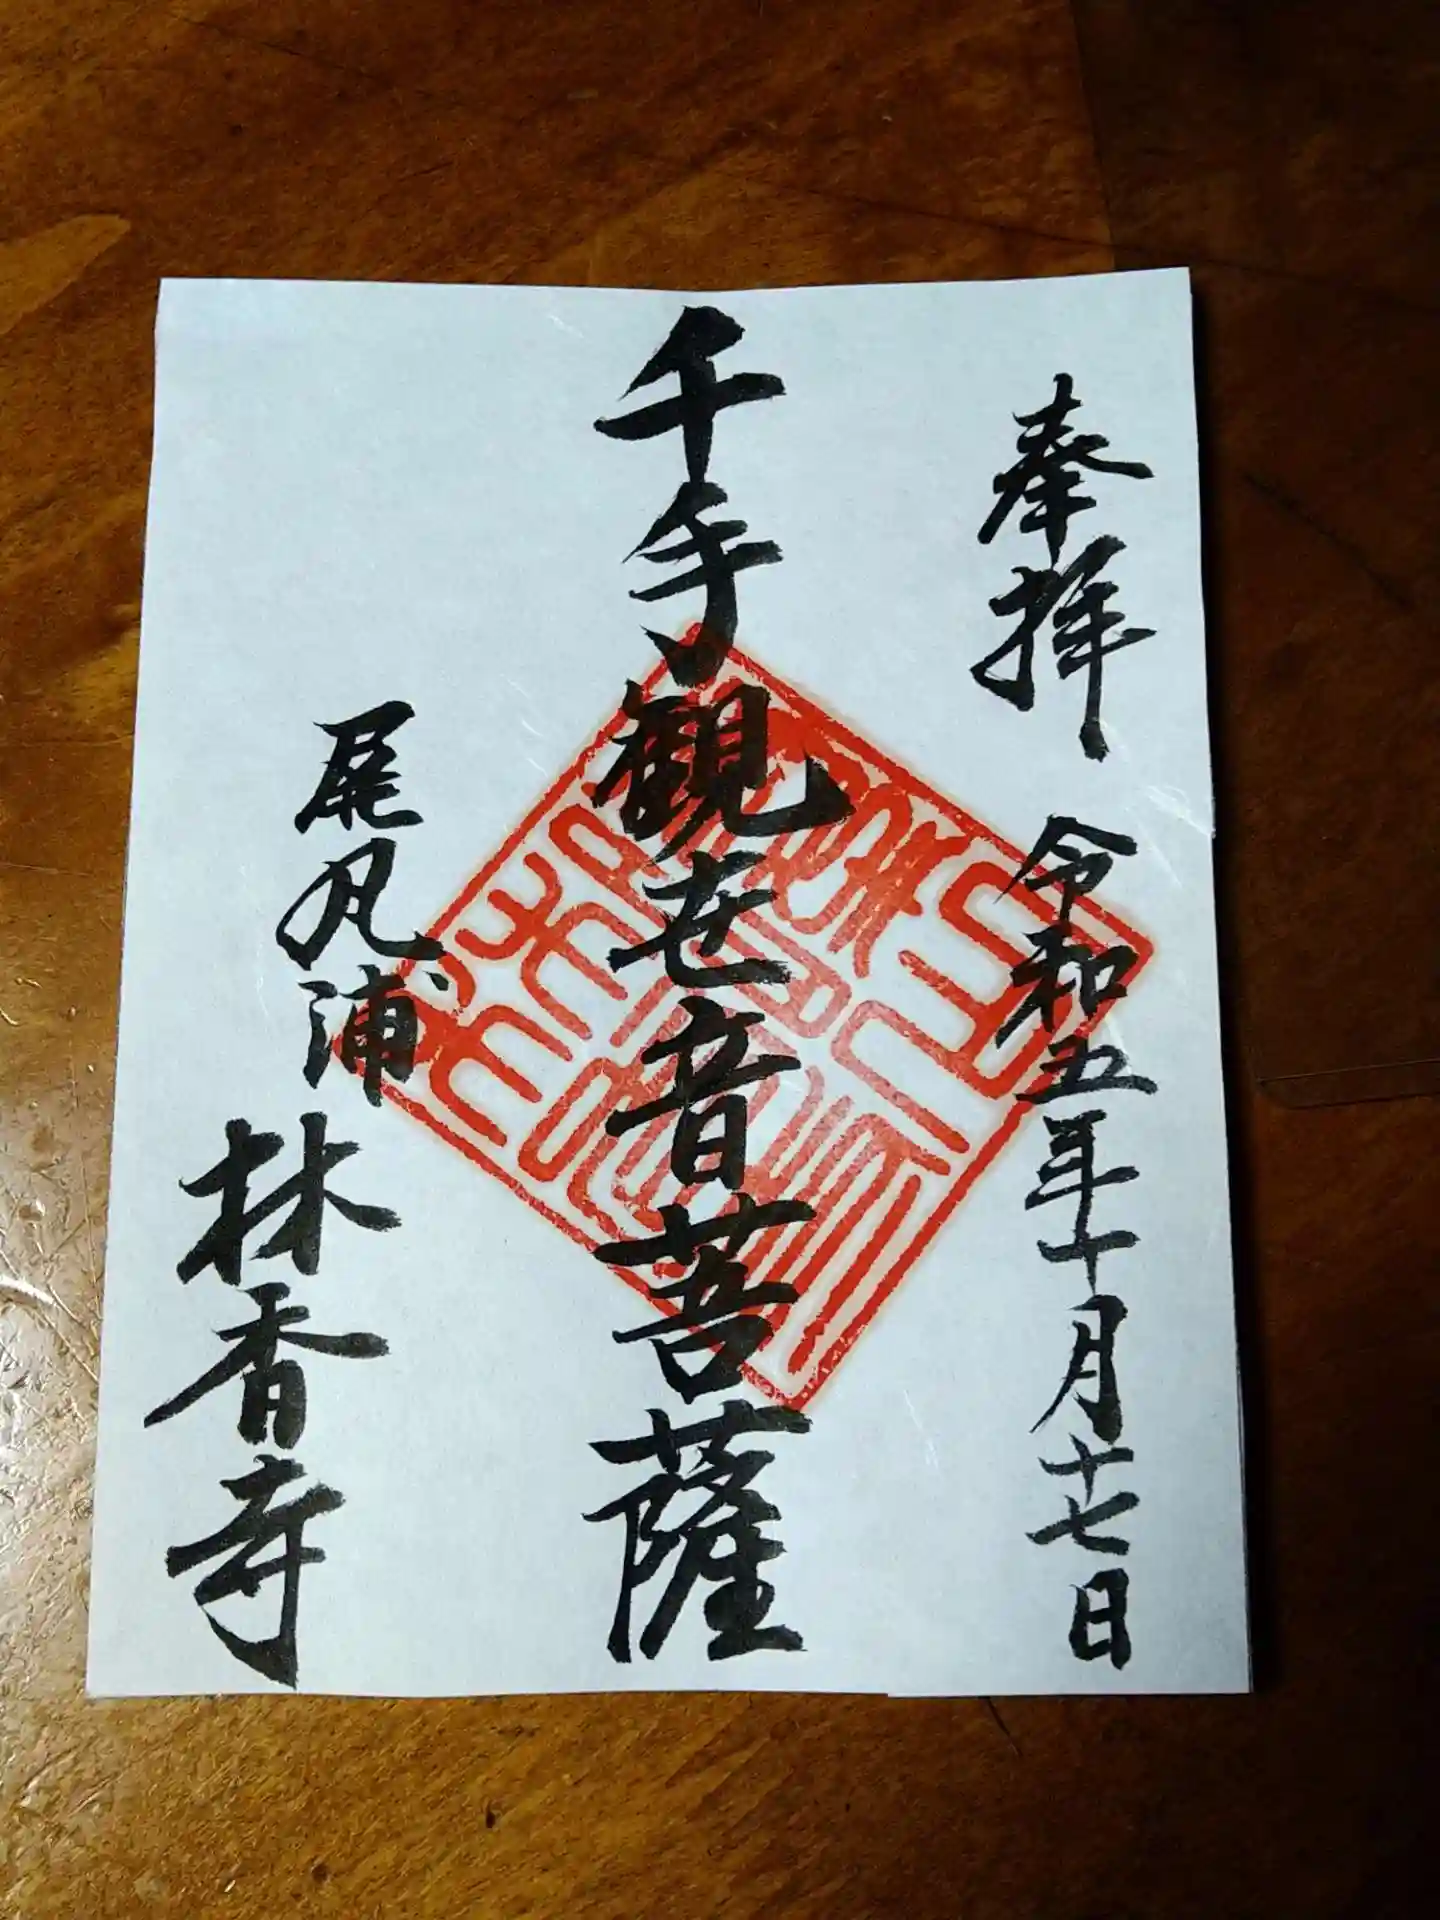 奉拝 令和五年十月十七日
千手観世音菩薩
尾凡浦
林香寺